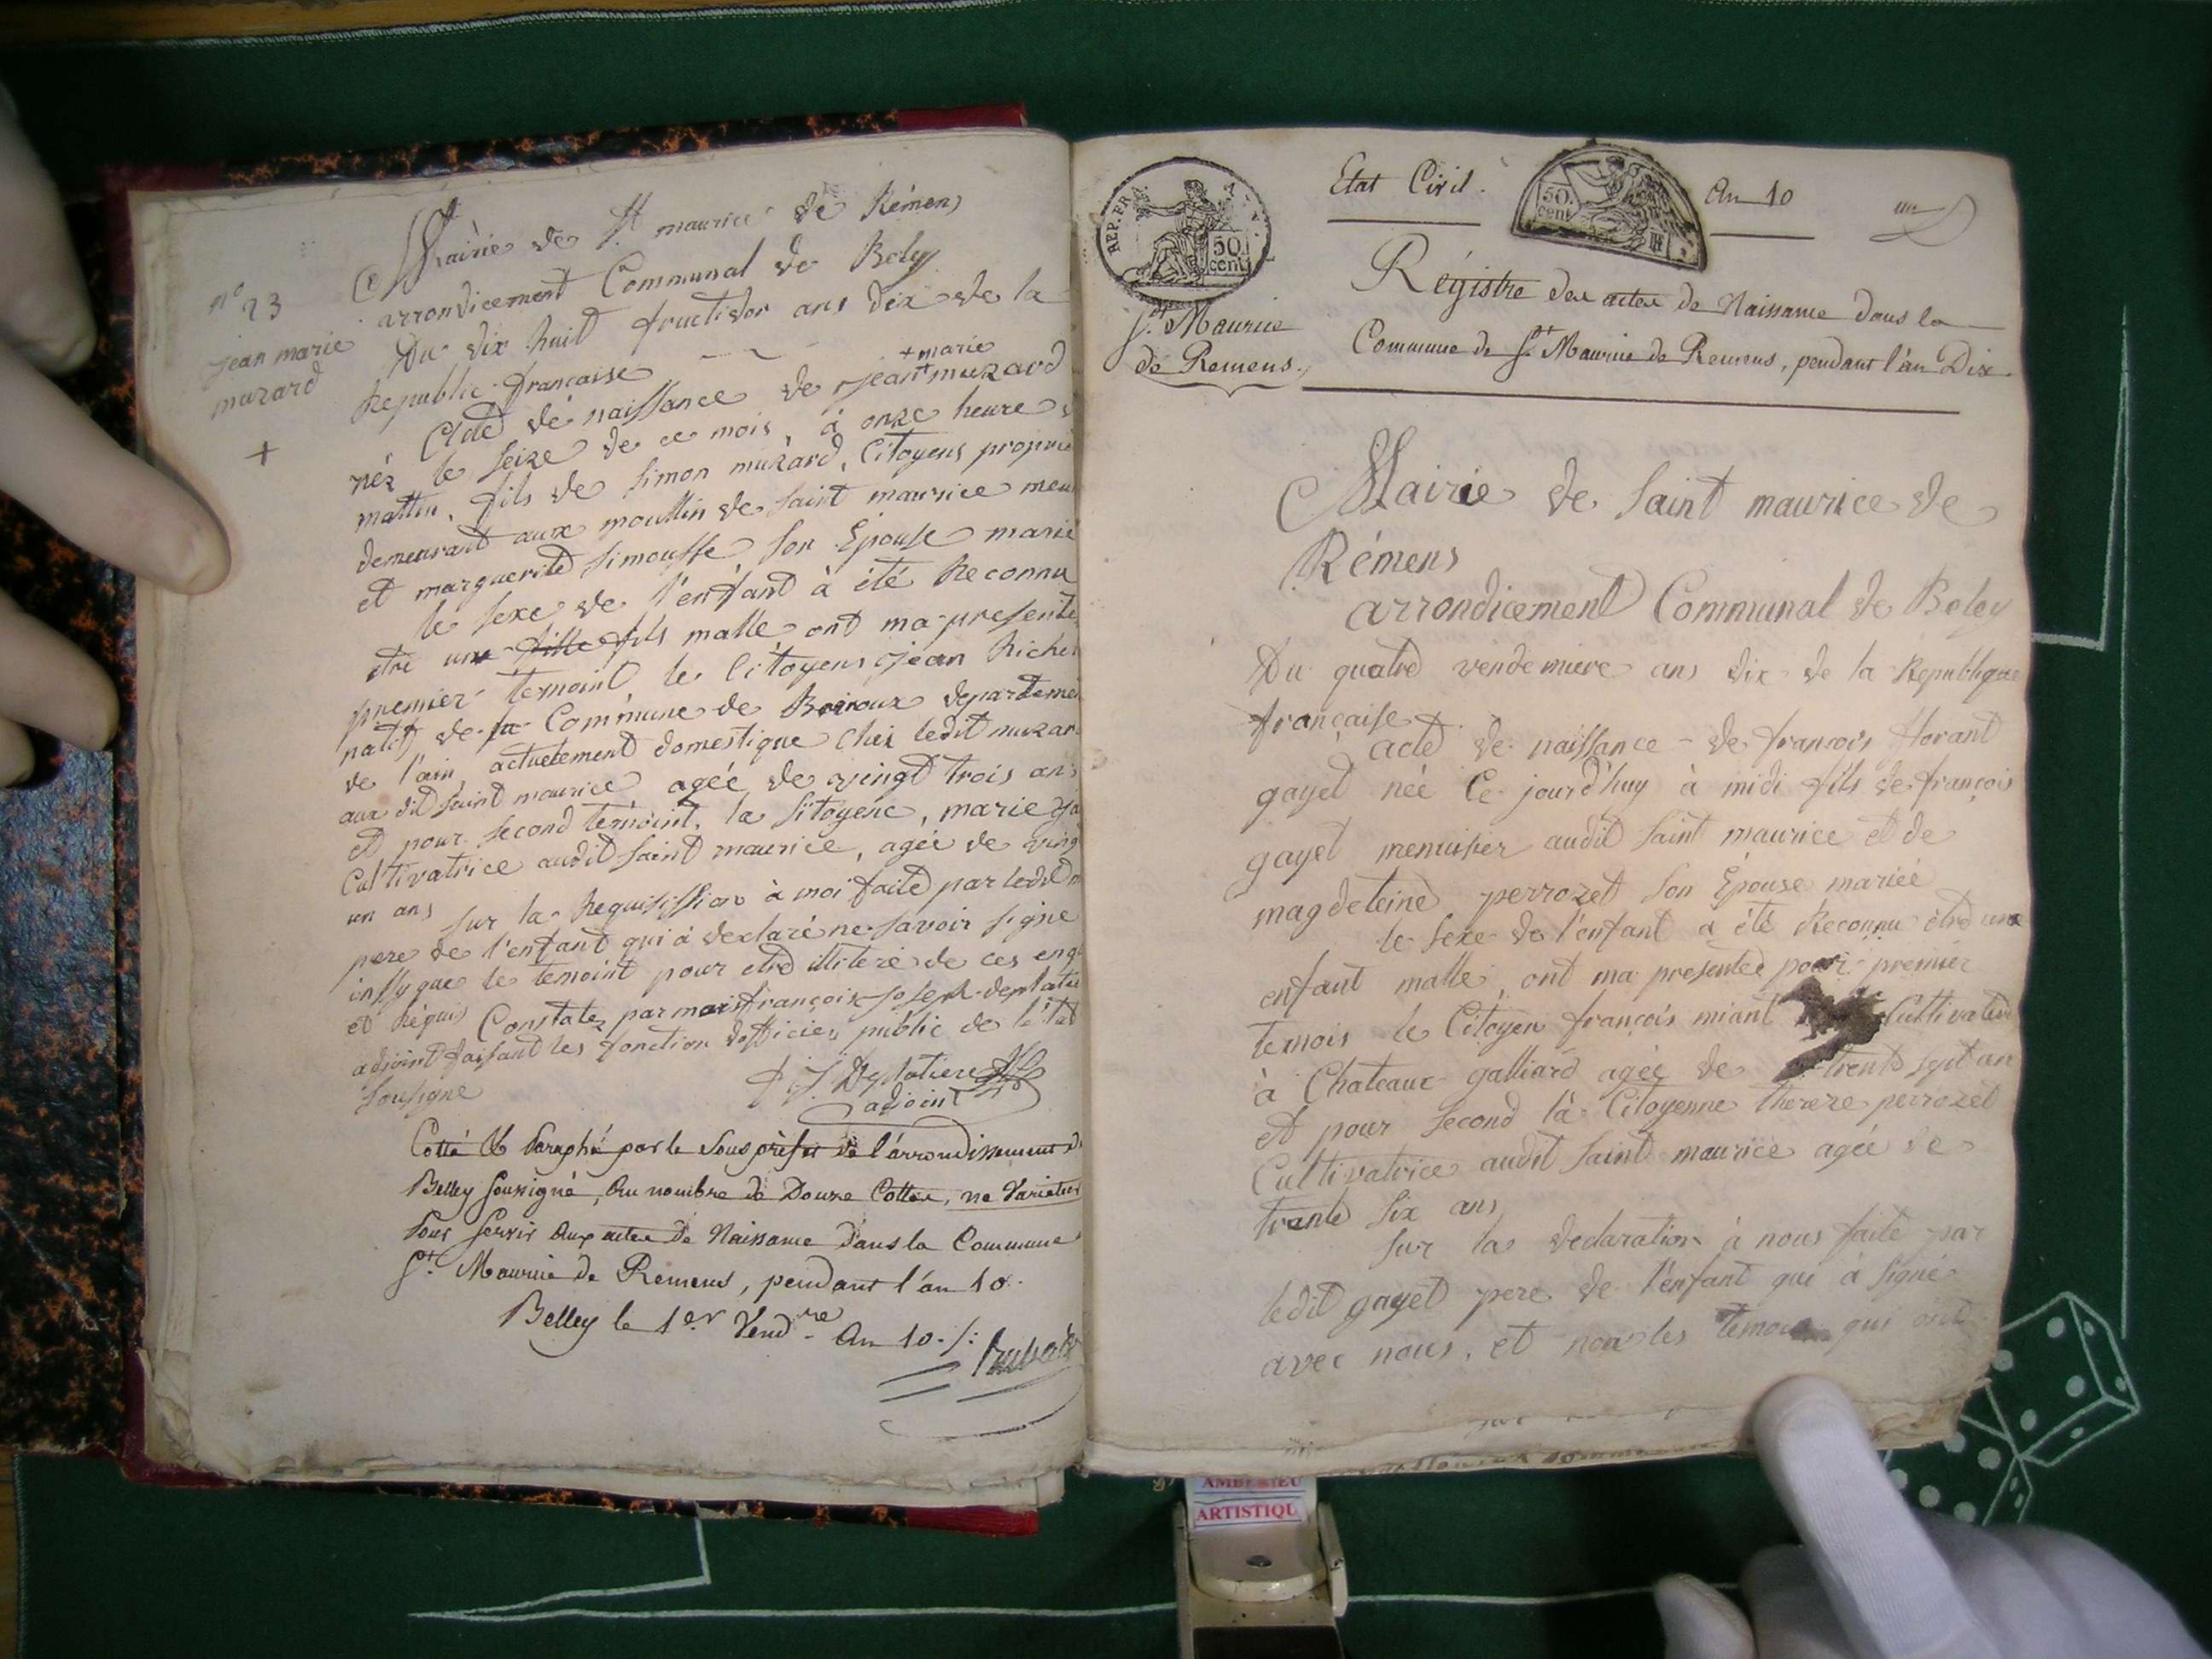 Mairie de St maurice de Rémens
arrondicement Communal de Beley
n° 23
jean marie
muzard
+
Du dix huit fructidor ans dix de la
Republic francaise
+ marie
Acte de naissance de jean + muzard
néz le seize de ce mois, à onze heure
mattin, fils de simon muzard, Citoyens proprie
demeurant aux moullin de saint maurice
et marguerite simousse son Epouse marie
le sexe de l'enfant à été Reconnu
etre une fille fils malle ont ma presente
premier temoint, le Citoyens jean Riche
natif de la Commune de departeme
de l'ain, actuelement domestique Chez ledit muzar
aux dit saint maurice agée de vingt trois ans
et pour second temoint, la Sitoyene, marie
Cultivatrice audit saint maurice, agée de ving
un ans
sur la Requisission à moi faite par ledit
pere de l'enfant qui à declaré ne savoir signe
insy que le temoint pour etre illiteré de ces
et Réquis
Constatez par moi françois joseph deplatie
adjoint faisant les fonction d'officier public de l'etat
sousigne
f. j. Deplatiere
adjoint
Cotté & Paraphé par le Sous préfet de l'arrondissement de
Belley soussigné, Au nombre de Douze Cottes, ne Varietur
Pour servir Aux actes de Naissance dans la Commune
St. Maurice de Remens, pendant l'an 10.
Belley le 1er Vend.re An 10./.
REP. FRA.
50
cent
Etat Civil.
50.
cent
An 10
St. Maurice
de Remens.
Régistre des actes de Naissance dans la
Commune de St Maurice de Remens, pendant l'an Dix.
Mairie de saint maurice de
Rémens
arrondicement Communal de Beley
Du quatre vendemiere ans dix de la Republique
française
acte de naissance de francois florant
gayet née Ce jourd'huy à midi fils de françois
gayet menuisier audit saint maurice et de
magdeleine perrozet son Epouse mariée
le sexe de l'enfant a été Reconnu etre une
enfant malle, ont ma presentée pour premier
temois le Citoyen françois miant Cultivateur
à Chateaux galliard agée de trente sept an
et pour second la Citoyenne thereze perrozet
Cultivatrice audit saint maurice agée de
trante six ans
sur la declaration à nous faite par
ledit gayet pere de l'enfant qui à signé
avec nous, et non les temoin qui ont
AMBERIEU
ARTISTIQU